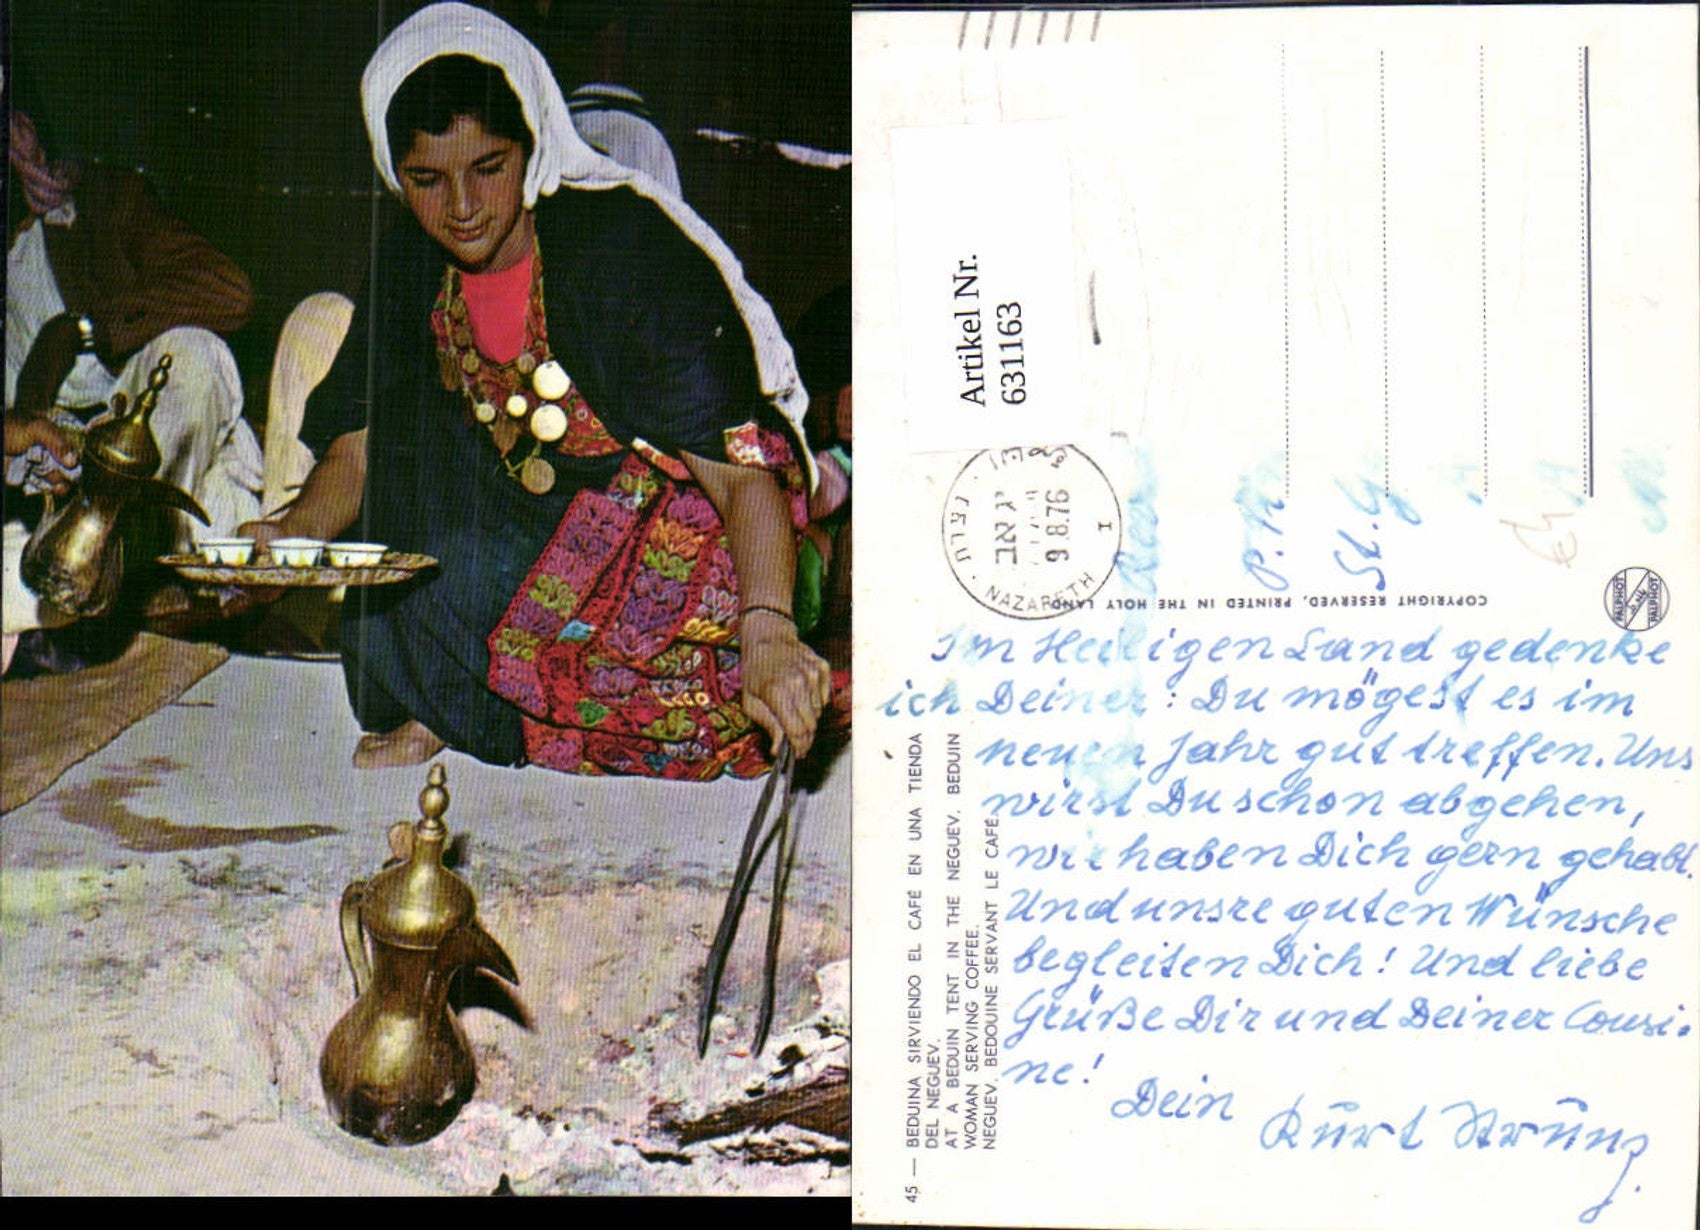 Artikel Nr.
631163
נצרת
יג אב
9.8.76
I
NAZARETH
P.
St. G
COPYRIGHT RESERVED, PRINTED IN THE HOLY LAND
PALPHOT
PALPHOT
Im Heiligen Land gedenke
ich Deiner: Du mögest es im
neuen Jahr gut treffen. Uns
wirst Du schon abgehen,
wir haben Dich gern gehabt.
Und unsre guten Wünsche
begleiten Dich! Und liebe
Grüße Dir und Deiner Cousi-
ne!
Dein Kurt
45 — BEDUINA SIRVIENDO EL CAFÉ EN UNA TIENDA
DEL NEGUEV.
AT A BEDUIN TENT IN THE NEGUEV. BEDUIN
WOMAN SERVING COFFEE.
NEGUEV. BEDOUINE SERVANT LE CAFÉ.